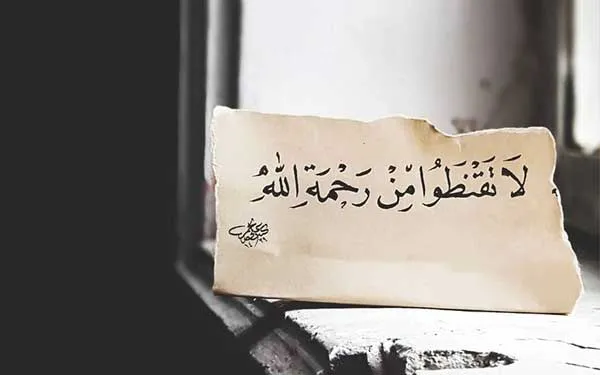 لَا تَقْنَطُوا مِّنْ رَحْمَةِ اللهِ